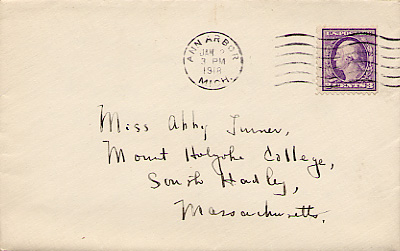 ANN ARBOR
JAN 2
3 PM
1918
MICH.
Miss Abby Turner,
Mount Holyoke College,
South Hadley,
Massachusetts.